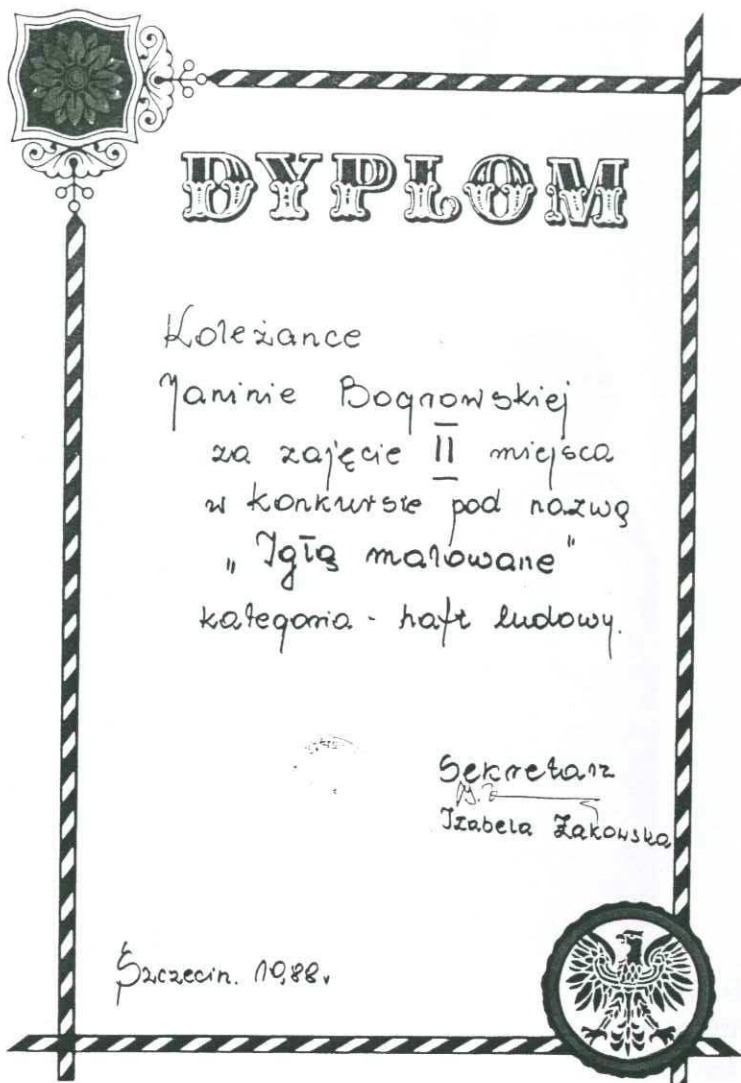 DYPLOM
Koleżance
Janinie Bogrowskiej
za zajęcie II miejsca
w konkursie pod nazwą
„Igłą malowane"
kategoria - haft ludowy.
Sekretarz
Izabela Żakowska
Szczecin. 10,88r